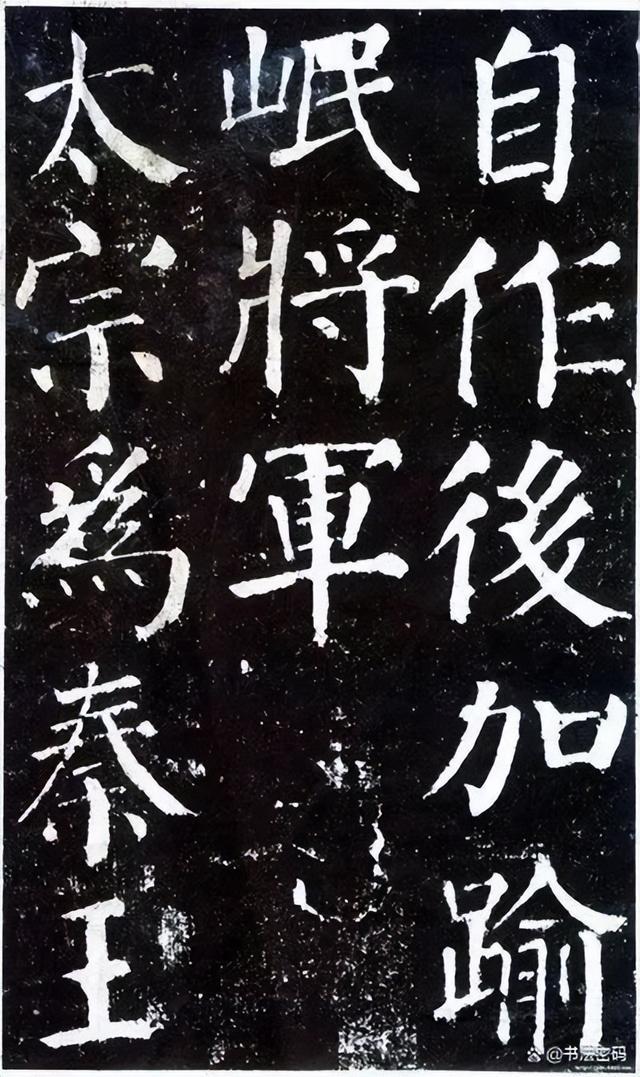 自作後加踰
岷將軍
太宗爲秦王
@书法密码